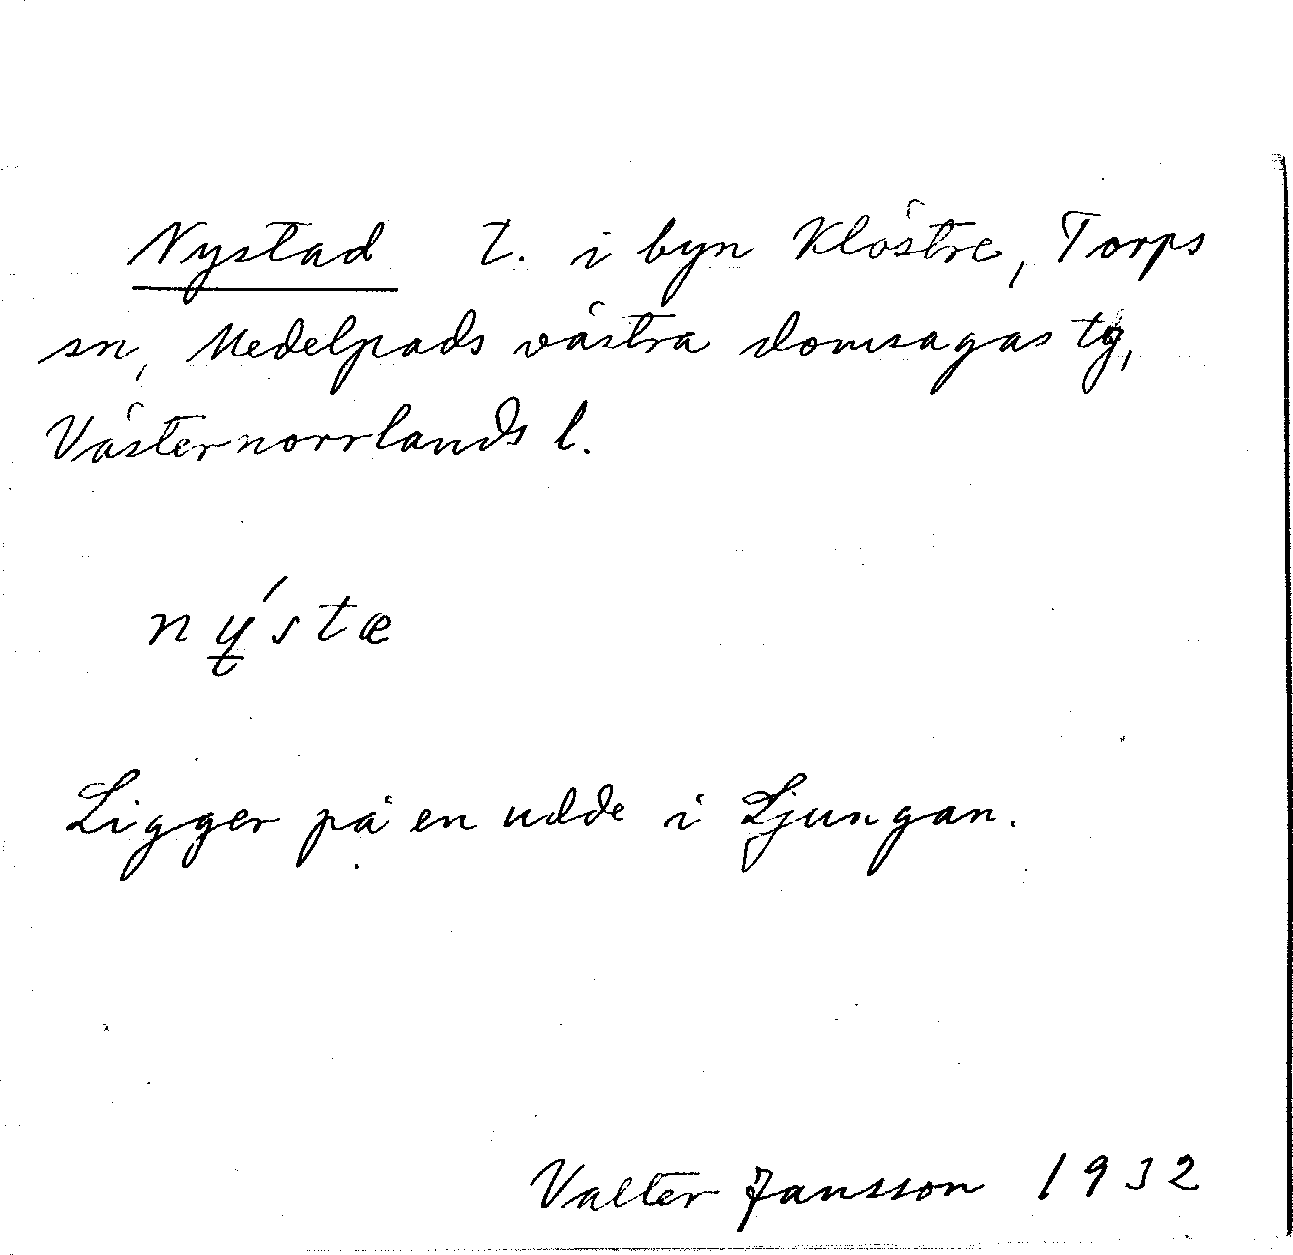 Nystad t. i byn Klöstre, Torps
sn, Medelpads västra domsagas tg,
Västernorrlands l.
ný̱stæ
Ligger på en udde i Ljungan.
Valter Jansson 1932